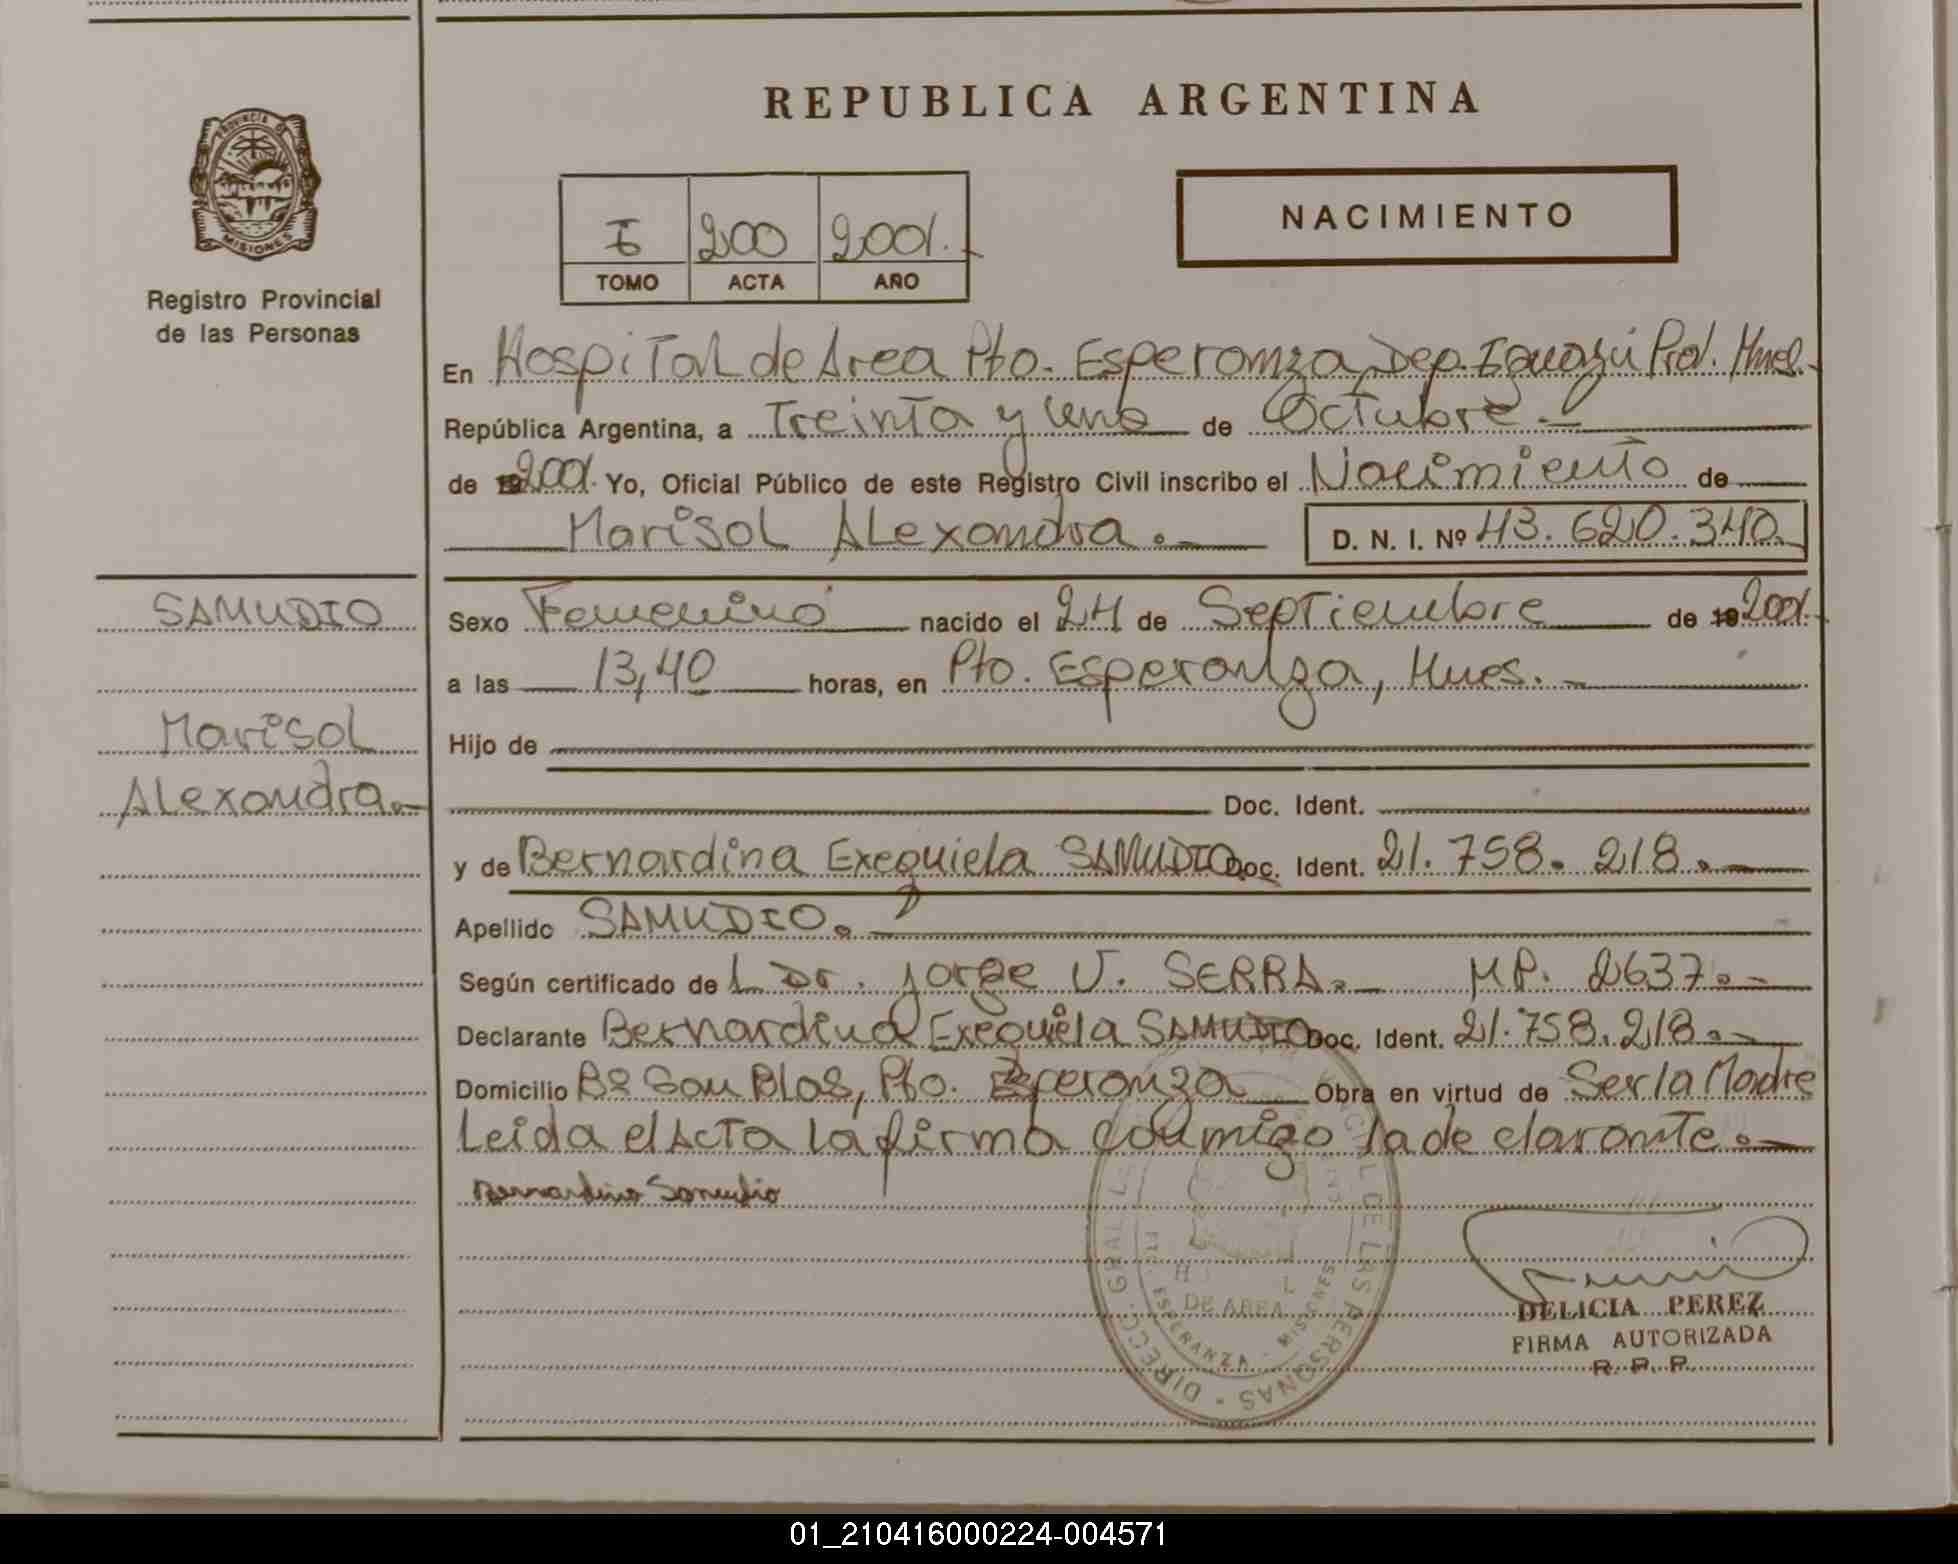 REPUBLICA ARGENTINA
PROVINCIA DE
MISIONES
Registro Provincial
de las Personas
NACIMIENTO
I 200 2001.
TOMO ACTA AÑO
En Hospital de Area Pto. Esperanza, Dep. Iguazú Prov. Mnes.
República Argentina, a Treinta y uno de Octubre.-
de 2001. Yo, Oficial Público de este Registro Civil inscribo el Nacimiento de
Marisol Alexandra.- D. N. I. Nº 43.620.340.
SAMUDIO
Marisol
Alexandra.-
Sexo Femenino nacido el 24 de Septiembre de 2001.
a las 13,40 horas, en Pto. Esperanza, Mnes.-
Hijo de
Doc. Ident.
y de Bernardina Exequiela SAMUDIO Doc. Ident. 21.758.218.-
Apellido SAMUDIO.-
Según certificado de L Dr. Jorge V. SERRA.- MP. 2637.-
Declarante Bernardina Exequiela SAMUDIO Doc. Ident. 21.758.218.-
Domicilio Bº San Blas, Pto. Esperanza Obra en virtud de Ser la Madre
Leida el Acta la firma conmigo la declarante.-
Bernardina Samudio
DIRECC. GRAL. DE LAS PERSONAS
DE AREA
ESPERANZA - MISIONES
DELICIA PEREZ
FIRMA AUTORIZADA
R. P. P.
01_210416000224-004571